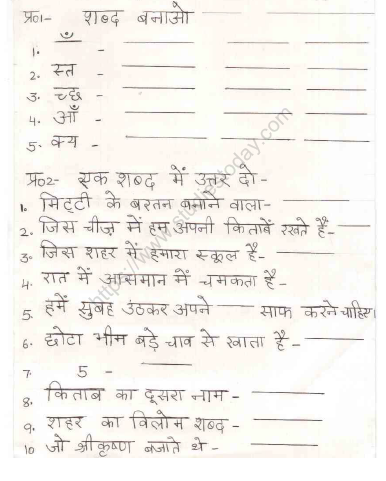 प्र०1- शब्द बनाओ
1. ँ -
2. स्त -
3. च्छ -
4. आँ -
5. क्य -
प्र०2- एक शब्द में उत्तर दो -
1. मिट्टी के बरतन बनाने वाला-
2. जिस चीज़ में हम अपनी किताबें रखते हैं-
3. जिस शहर में हमारा स्कूल है-
4. रात में आसमान में चमकता है-
5. हमें सुबह उठकर अपने ___ साफ करने चाहिए।
6. छोटा भीम बड़े चाव से खाता है-
7. 5 -
8. किताब का दूसरा नाम -
9. शहर का विलोम शब्द -
10 जो श्रीकृष्ण बजाते थे -
https://www.studiestoday.com